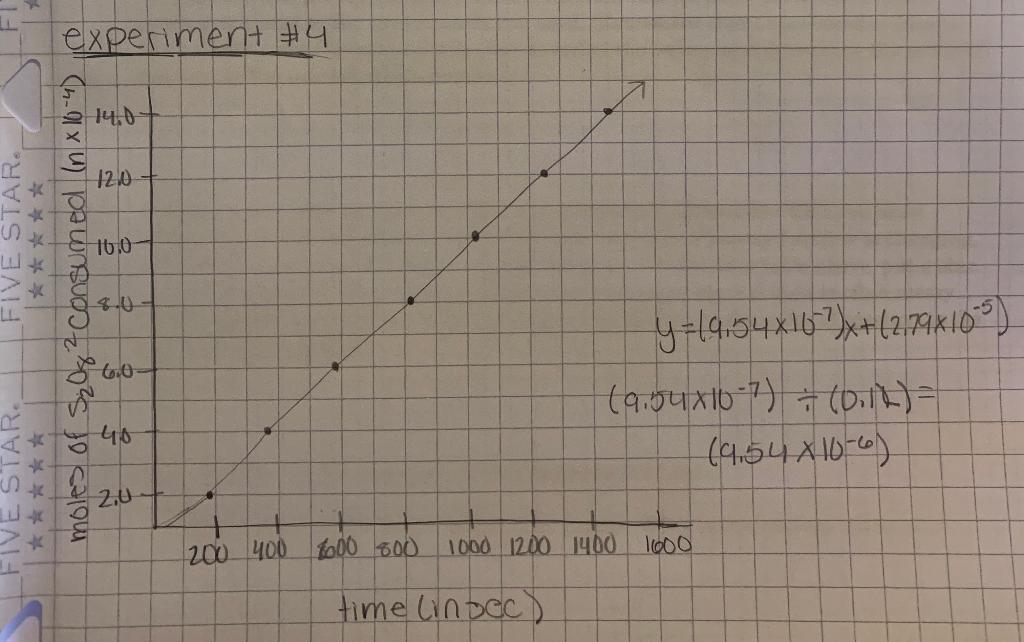 experiment #4
moles of S₂O₈² consumed (n x 10⁻⁴)
14.0
12.0
10.0
8.0
6.0
4.0
2.0
200 400 600 800 1000 1200 1400 1600
time (in sec)
y=(9.54x10⁻⁷)x+(2.79x10⁻⁵)
(9.54x10⁻⁷) ÷ (0.1L)=
(9.54 x10⁻⁶)
FIVE STAR.
FIVE STAR.